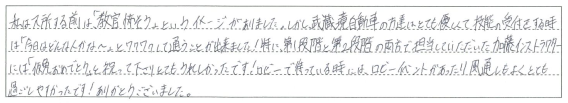 私は入所する前は「教官は怖そう」というイメージがありました。しかし武蔵境自動車の方達はとても優しくて技能の受付をする時
は「今日はどんなんかな〜」とワクワクして通うことが出来ました！特に第1段階と第2段階の両方で担当していただいた加藤インストラクター
には「仮免おめでとう」と祝って下さりとてもうれしかったです！ロビーで待っている時には、ロビーイベントがあったり風通しもよくとても
過ごしやすかったです！ありがとうございました。